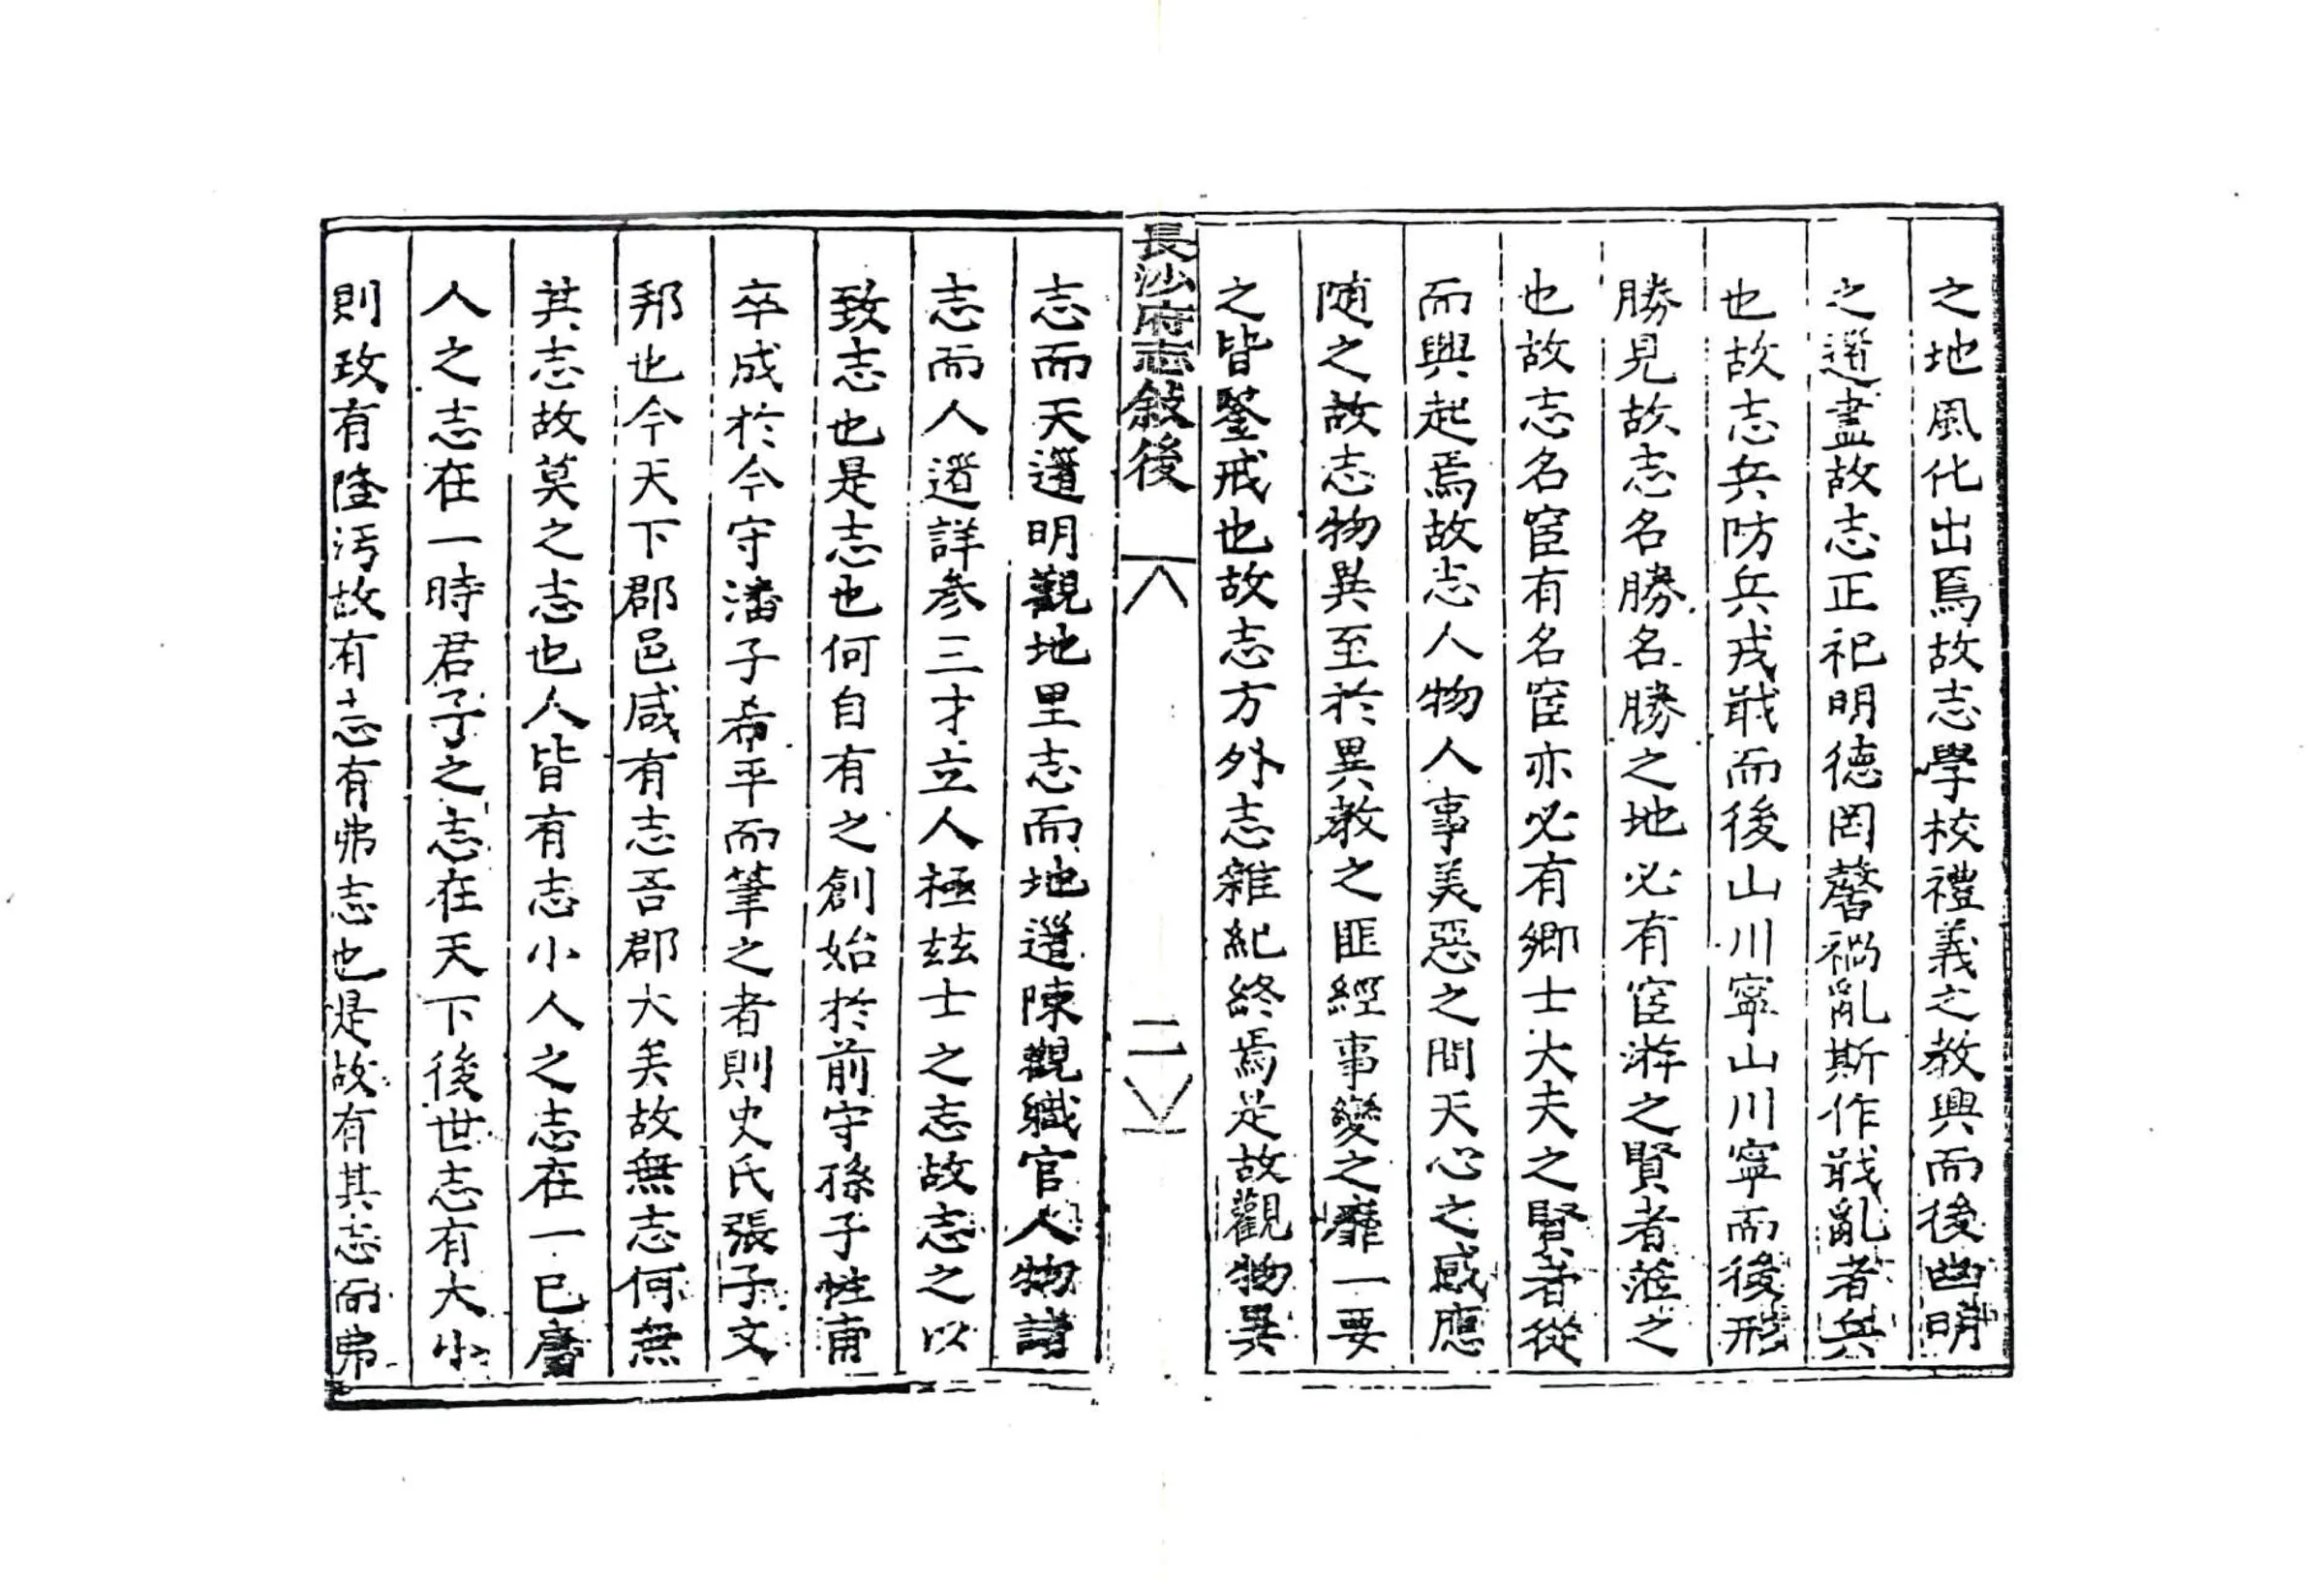 之地風化出焉故志學校禮義之教興而後幽明
之道盡故志正祀明德罔馨禍亂斯作戢亂者兵
也故志兵防兵戎戢而後山川寧山川寧而後形
勝見故志名勝名勝之地必有宦游之賢者蒞之
也故志名宦有名宦亦必有鄉士大夫之賢者從
而興起焉故志人物人事美惡之間天心之感應
隨之故志物異至於異教之匪經事變之靡一要
之皆鑒戒也故志方外志雜紀終焉是故觀物異
長沙府志敘後 二
志而天道明觀地里志而地道陳觀職官人物諸
志而人道詳參三才立人極玆士之志故志之以
致志也是志也何自有之創始於前守孫子性甫
卒成於今守潘子希平而筆之者則史氏張子文
邦也今天下郡邑咸有志吾郡大矣故無志何無
其志故莫之志也人皆有志小人之志在一己庸
人之志在一時君子之志在天下後世志有大小
則政有隆汚故有志有弗志也是故有其志而弗